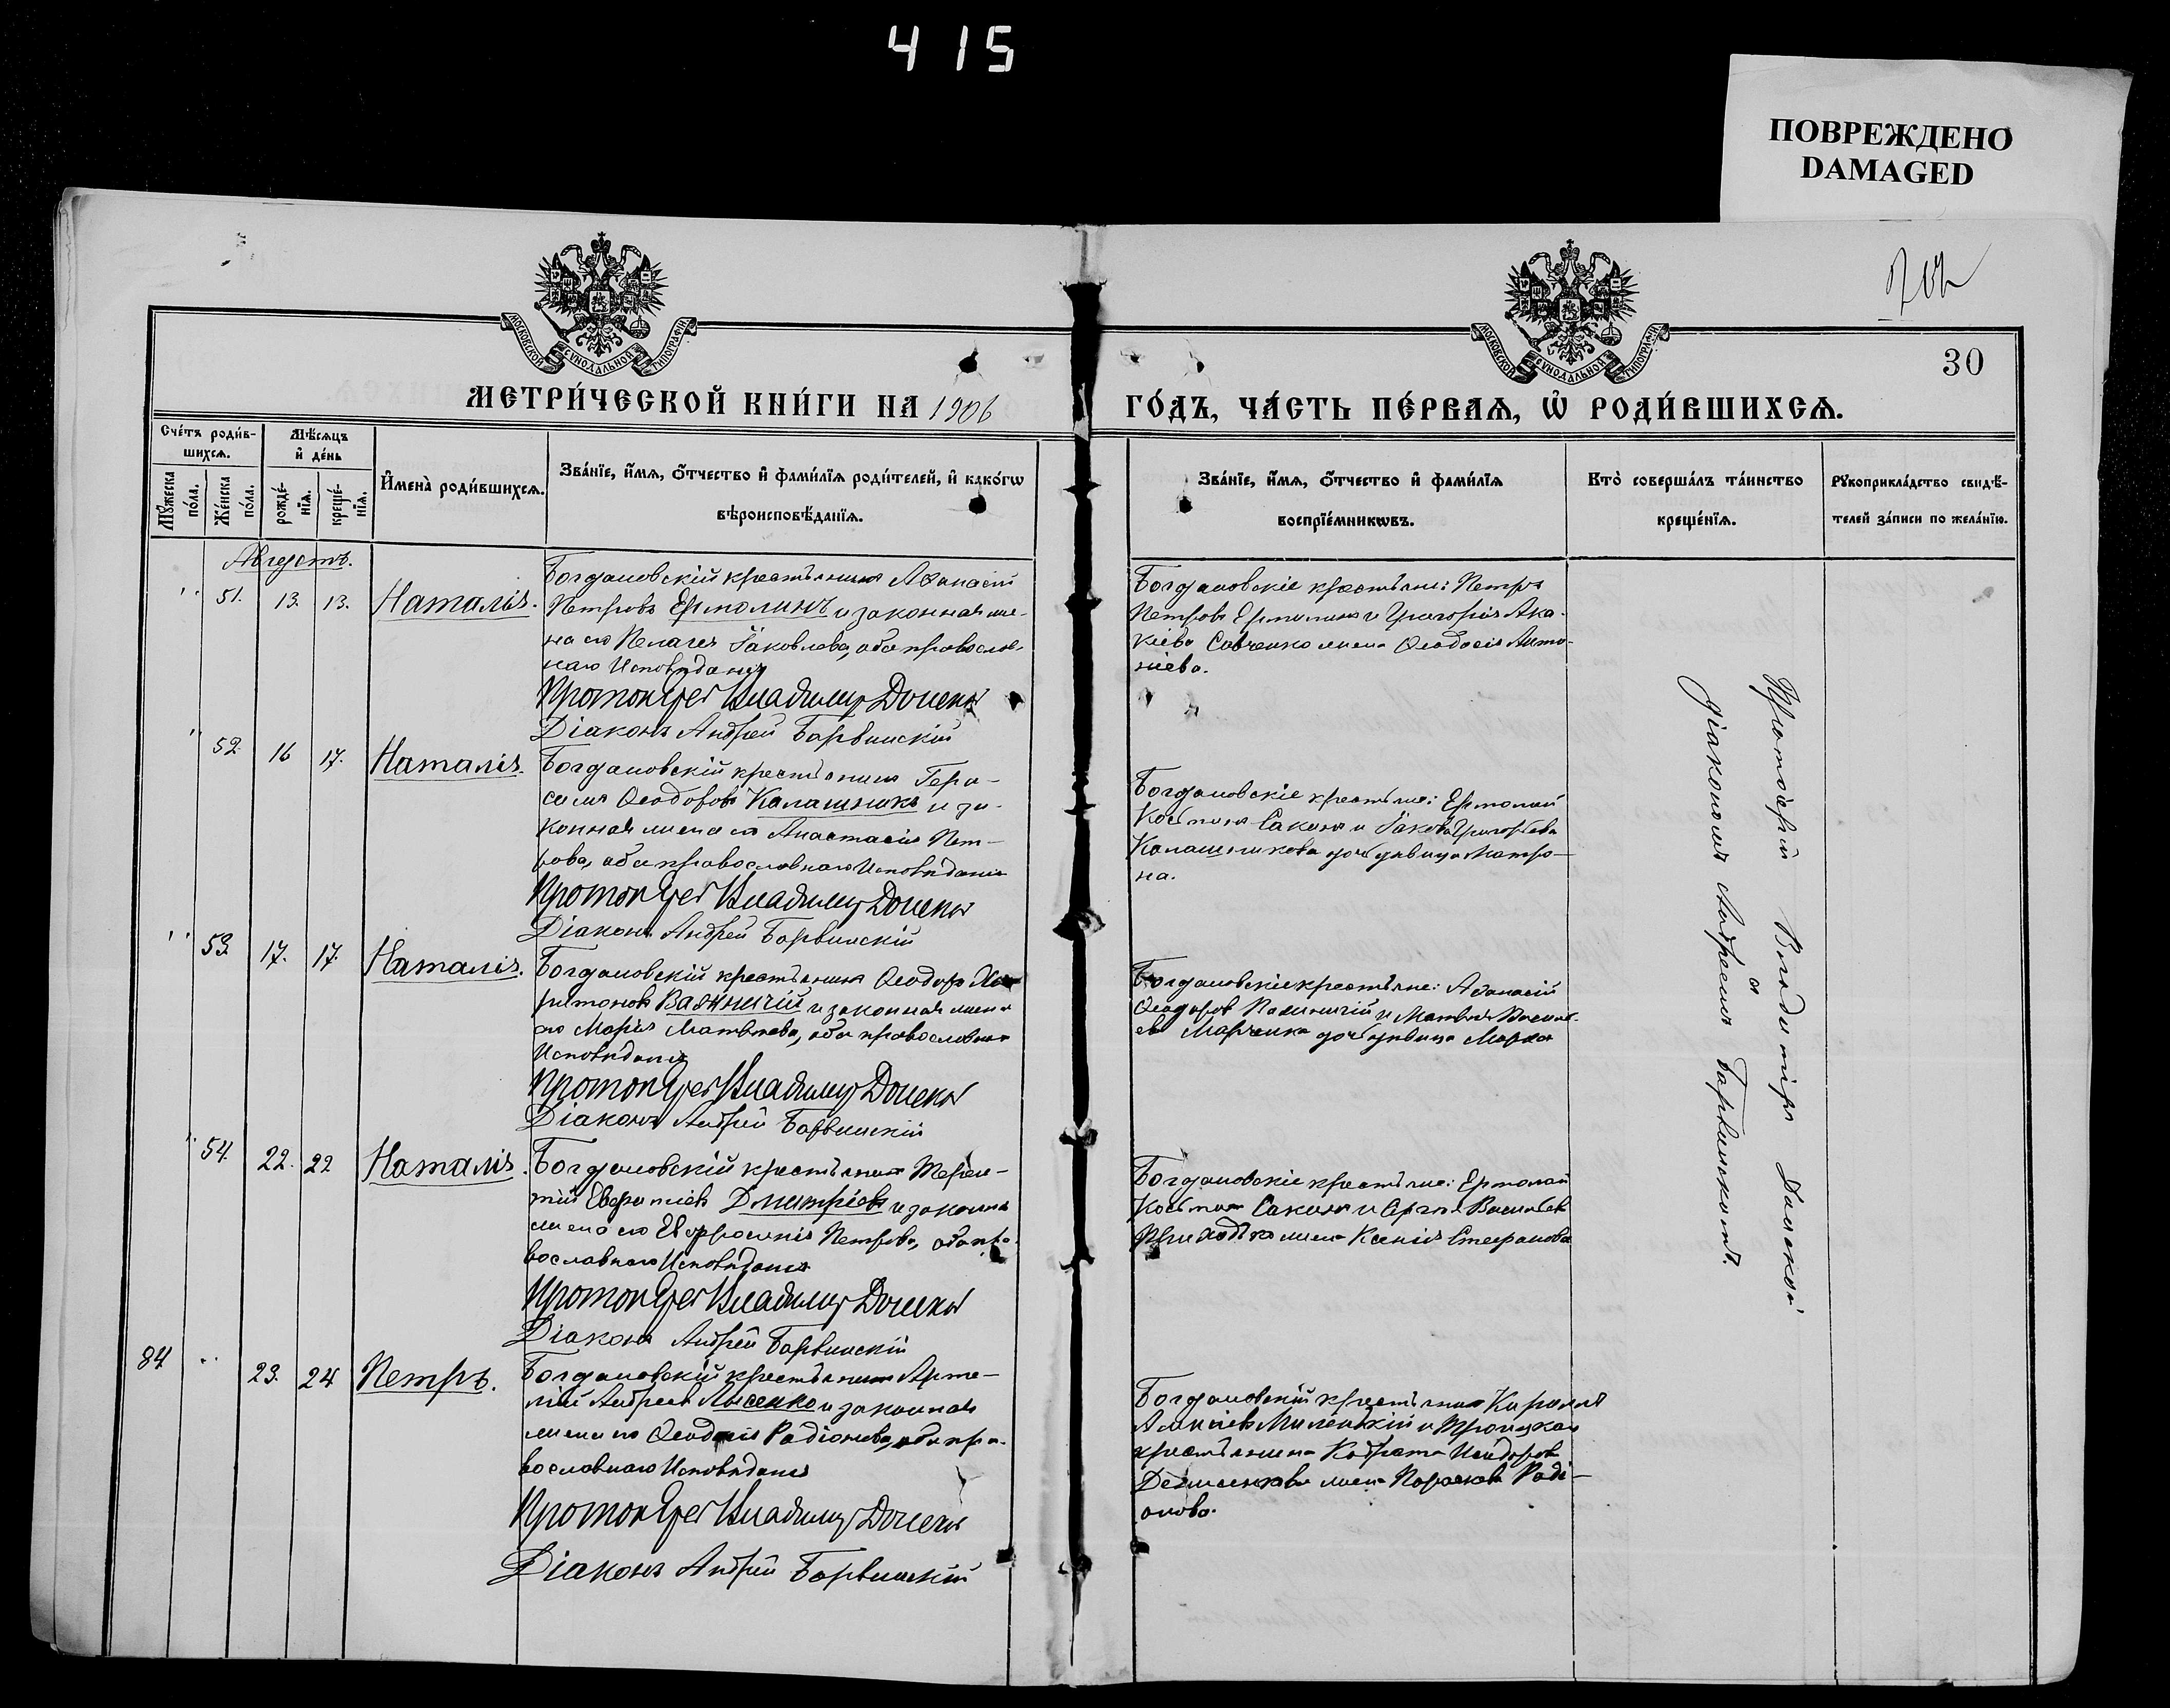 415
ПОВРЕЖДЕНО
DAMAGED
30
МОСКОВСКОЙ СѴНОДАЛЬНОЙ ТИПОГРАФІИ
МОСКОВСКОЙ СѴНОДАЛЬНОЙ ТИПОГРАФІИ
МЕТРИ́ЧЕСКОЙ КНИ́ГИ НА 1906 ГО́ДЪ, ЧА́СТЬ ПЕ́РВАЯ, Ѡ҆ РОДИ́ВШИХСѦ.
Сче́тъ роди́в-
шихсѧ.
Мꙋ́жеска
по́ла.
Же́нска
по́ла.
Мѣ́сѧцъ
и҆ де́нь
рожде́-
нїѧ.
креще́-
нїѧ.
И҆мена̀ роди́вшихсѧ.
Зва́нїе, и҆́мѧ, ѻ҆́тчество и҆ фами́лїѧ роди́телей, и҆ како́гѡ
вѣроисповѣ́данїѧ.
Зва́нїе, и҆́мѧ, ѻ҆́тчество и҆ фами́лїѧ
воспрїе́мникѡвъ.
Кто̀ соверша́лъ та́инство
креще́нїѧ.
Рꙋкоприкла́дство свидѣ́-
телей за́писи по жела́нїю.
Августъ.
" 51. 13. 13. Наталія.
Богдановскій крестьянинъ Аѳанасій
Петровъ Ермолинъ и законная же-
на его Пелагея Іаковлева, оба православ-
наго Исповѣданія
Протоіерей Владимир Донской
Діаконъ Андрей Барвинскій
Богдановскіе крестьяне: Петръ
Петровъ Ермолинъ и Григорія Ака-
кіева Савченко жена Ѳеодосія Анто-
ніева.
" 52. 16 17. Наталія.
Богдановскій крестьянинъ Гера-
симъ Ѳеодоровъ Калашникъ и за-
конная жена его Анастасія Пет-
рова, оба православнаго Исповѣданія
Протоіерей Владимир Донской
Діаконъ Андрей Барвинскій
Богдановскіе крестьяне: Ермолай
Сакунъ и Іакова Григорьева
Калашникова дочь дѣвица Матро-
на.
" 53. 17. 17. Наталія.
Богдановскій крестьянинъ Ѳеодоръ Ха-
ритоновъ Важничій и законная жена
его Марія Матвѣева, оба православнаго
Исповѣданія
Протоіерей Владимир Донской
Діаконъ Андрей Барвинскій
Богдановскіе крестьяне: Аѳанасій
Ѳеодоровъ и Матвѣя Василь-
ева Марченка дочь дѣвица Марѳа
" 54. 22. 22 Наталія.
Богдановскій крестьянинъ Терен-
тій Дмитріевъ и законная
жена его Евфросинія Петрова, оба пра-
вославнаго Исповѣданія
Протоіерей Владимир Донской
Діаконъ Андрей Барвинскій
Богдановскіе крестьяне: Ермолай
Сакунъ и Сергія Васильева
Приходька жена Ксенія Стефанова
84 " 23. 24 Петръ.
Богдановскій крестьянинъ Арте-
мій Андреевъ Лысенко и законная
жена его Ѳеодосія Радіонова, оба пра-
вославнаго Исповѣданія
Протоіерей Владимир Донской
Діаконъ Андрей Барвинскій
Богдановскій крестьянинъ Кириллъ
и Троицкаго
крестьянина Кодрата Исидорова
жена Параскева Раді-
онова.
Протоіерей Владимиръ Донской
съ
діакономъ Андреемъ Барвинскимъ.